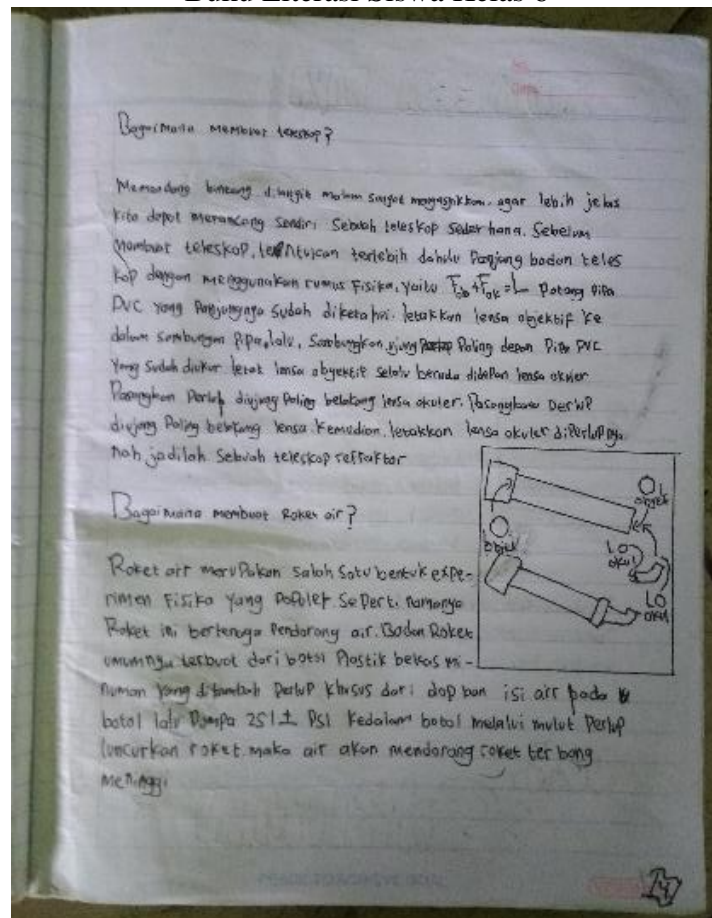 Buku Literasi Siswa Kelas 6
Bagaimana membuat teleskop?
Memandang bintang dilangit malam sangat mengasikkan. agar lebih jelas
kita dapat merancang sendiri Sebuah teleskop sederhana. Sebelum
Membuat teleskop, tentukan terlebih dahulu Panjang badan teles
kop dengan menggunakan rumus Fisika, yaitu Fob + Fok = L Potong Pipa
PVC yang Panjangnya sudah diketahui. letakkan lensa objektif ke
dalam sambungan Pipa, lalu, Sambungkan ujung Paling depan Pipa PVC
Yang Sudah diukur. letak lensa obyektif selalu berada didepan lensa okuler
Pasangkan Perlup diujung Paling belakang lensa okuler. Pasangkan Perlup
diujung Paling belakang lensa. Kemudian. letakkan lensa okuler diPerlupnya
nah jadilah Sebuah teleskop reffaktor
Bagaimana membuat Roket air?
Roket air meruPakan salah Satu bentuk expe-
rimen Fisika Yang PoPuler. SePerti namanya
Roket ini bertenaga Pendorong air. Badan Roket
umumnya terbuat dari botol Plastik bekas mi-
numan Yang ditambah PerluP khusus dari dop ban isi air pada
botol lalu Pompa 251± PSI Kedalam botol melalui mulut PerluP
luncurkan roket. maka air akan mendorong roket terbang
Meninggi
objek
objek
LO
okul
LO
okul
14